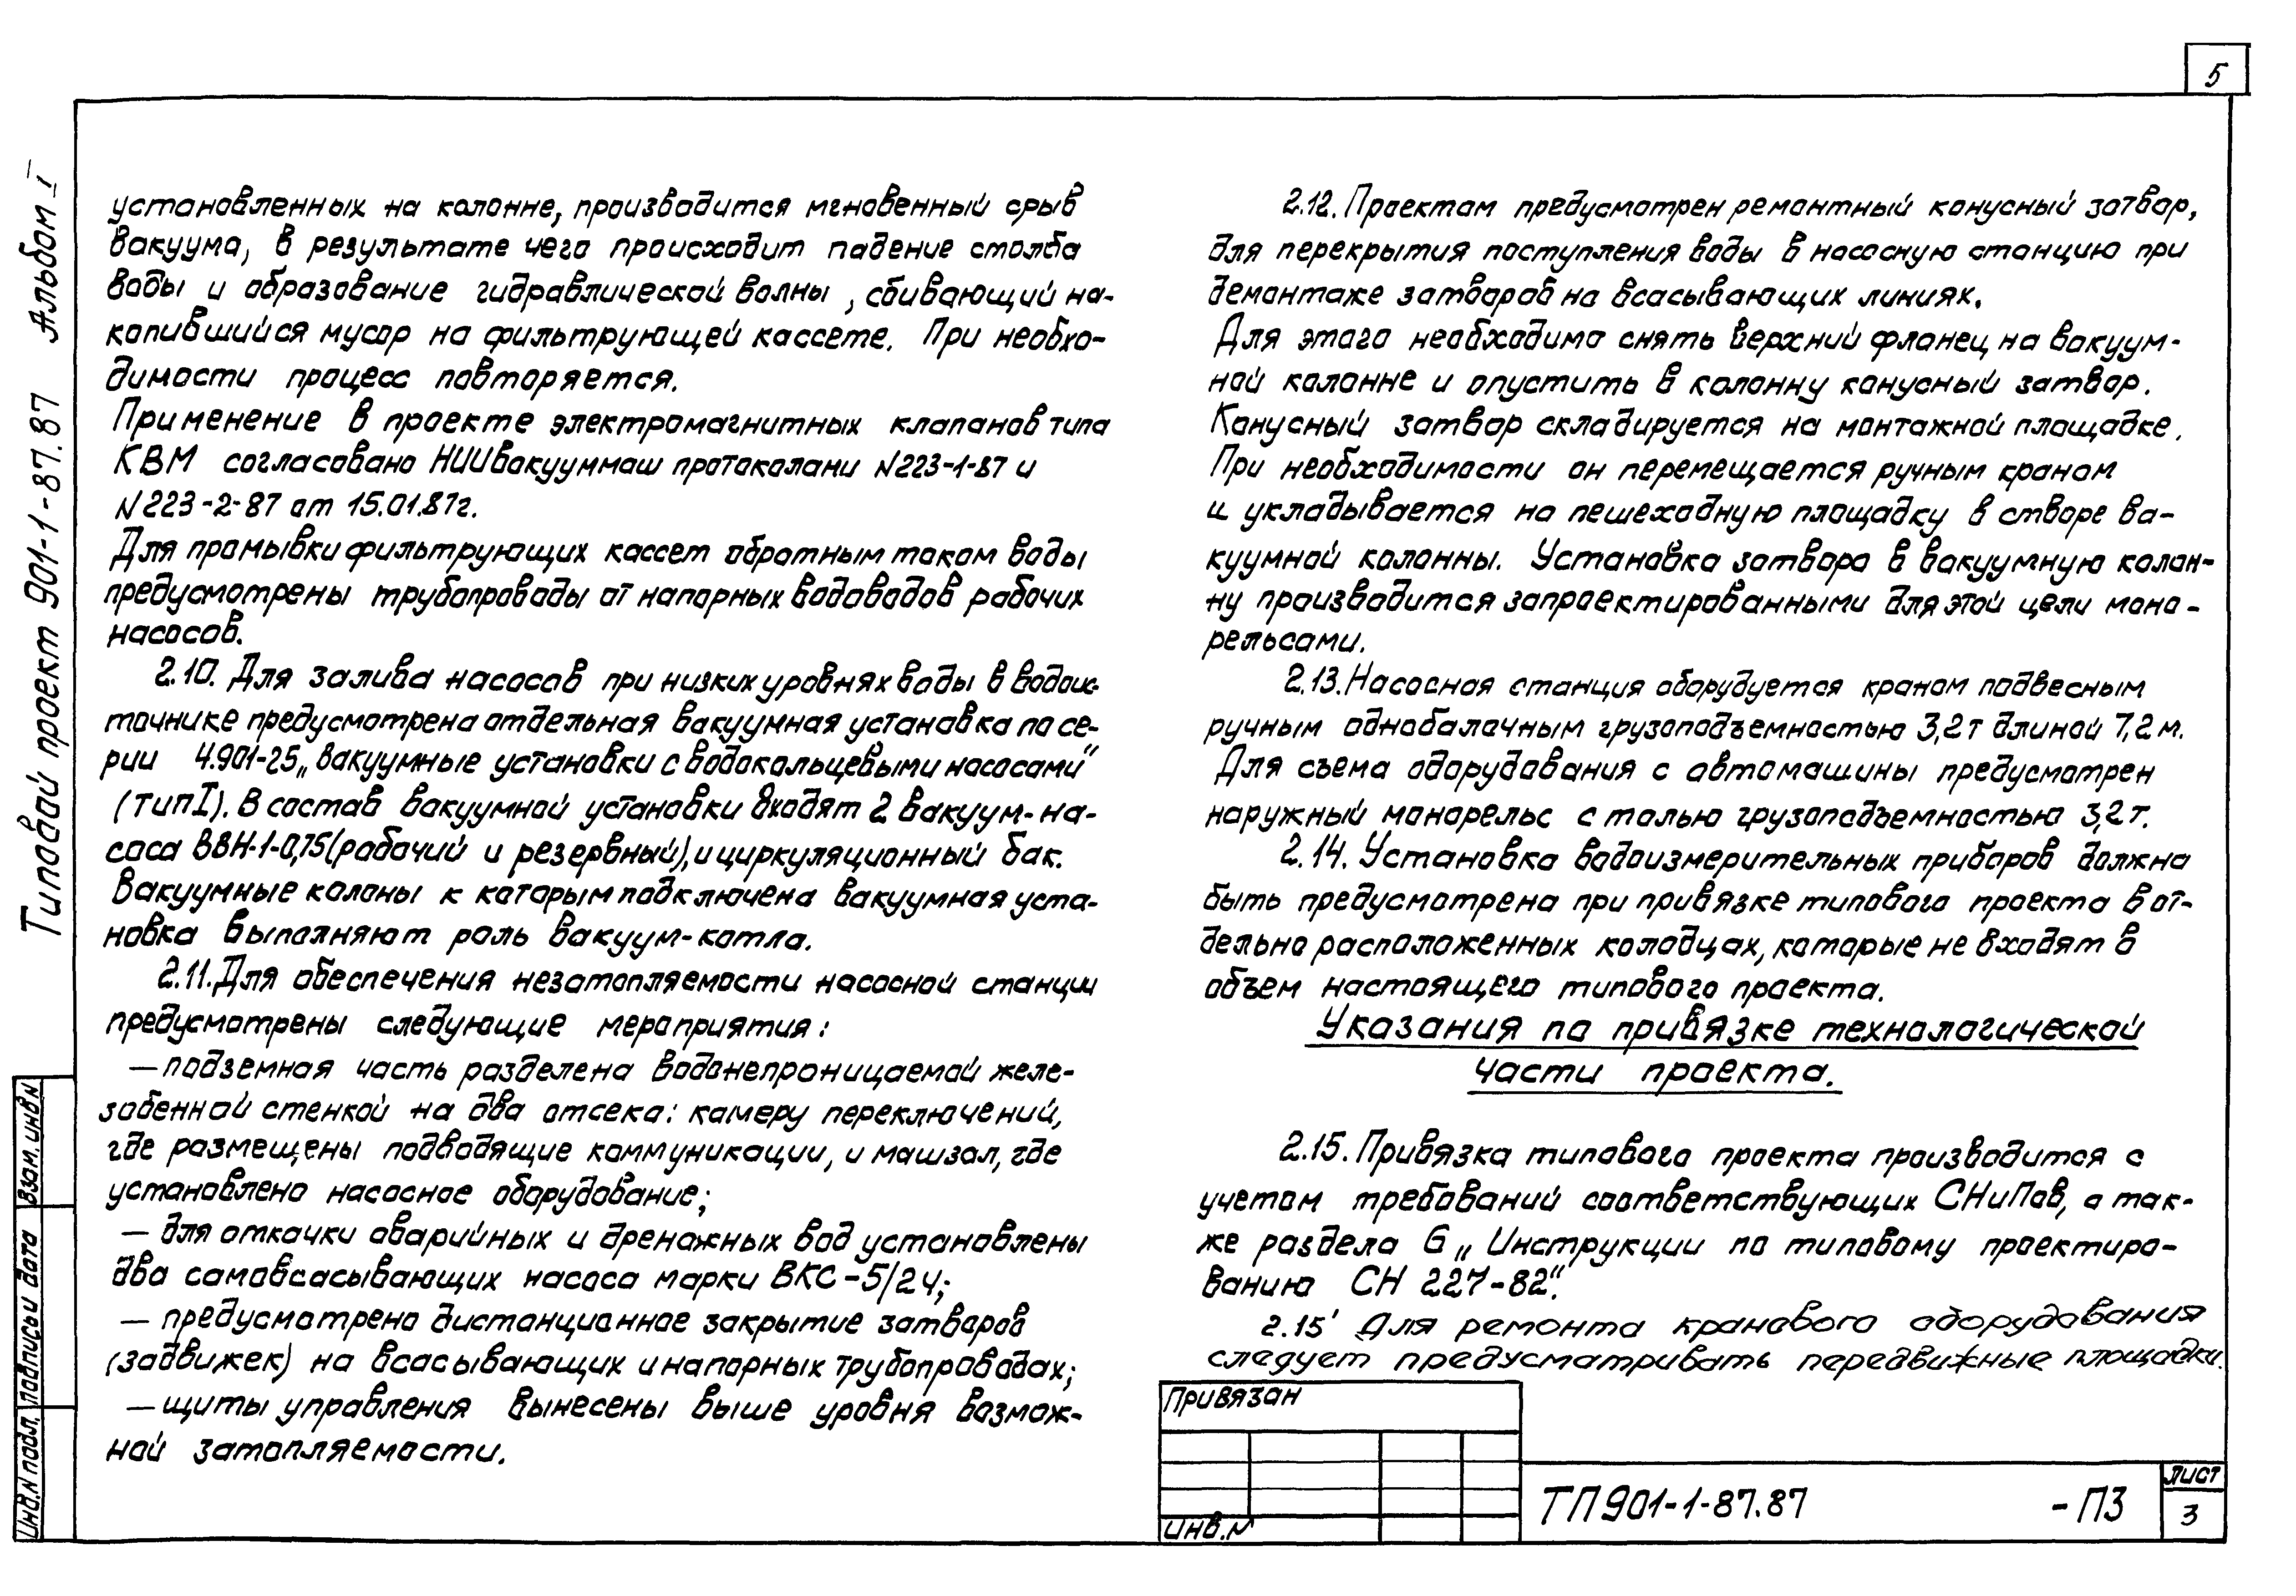 5
Типовой проект 901-1-87.87 Альбом I
установленных на колонне, производится мгновенный срыв
вакуума, в результате чего происходит падение столба
воды и образование гидравлической волны, сбивающий на-
копившийся мусор на фильтрующей кассете. При необхо-
димости процесс повторяется.
Применение в проекте электромагнитных клапанов типа
КВМ согласовано НИИвакууммаш протоколани N223-1-87 и
N223-2-87 от 15.01.87г.
Для промывки фильтрующих кассет обратным током воды
предусмотрены трубопроводы от напорных водоводов рабочих
насосов.
2.10. Для залива насосов при низких уровнях воды в водоис-
точнике предусмотрена отдельная вакуумная установка по се-
рии 4.901-25 „Вакуумные установки с водокольцевыми насосами"
(тип I). В состав вакуумной установки входят 2 вакуум-на-
соса ВВН-1-0,75 (рабочий и резервный), и циркуляционный бак.
Вакуумные колоны к которым подключена вакуумная уста-
новка выполняют роль вакуум-котла.
2.11. Для обеспечения незатопляемости насосной станции
предусмотрены следующие мероприятия:
— подземная часть разделена водонепроницаемой желе-
зобенной стенкой на два отсека: камеру переключений,
где размещены подводящие коммуникации, и машзал, где
установлено насосное оборудование;
— для откачки аварийных и дренажных вод установлены
два самовсасывающих насоса марки ВКС-5/24;
— предусмотрено дистанционное закрытие затворов
(задвижек) на всасывающих и напорных трубопроводах;
— щиты управления вынесены выше уровня возмож-
ной затопляемости.
2.12. Проектам предусмотрен ремонтный конусный затвор,
для перекрытия поступления воды в насосную станцию при
демонтаже затворов на всасывающих линиях.
Для этого необходимо снять верхний фланец на вакуум-
ной колонне и опустить в колонну конусный затвор.
Конусный затвор складируется на монтажной площадке.
При необходимости он перемещается ручным краном
и укладывается на пешеходную площадку в створе ва-
куумной колонны. Установка затвора в вакуумную колон-
ну производится запроектированными для этой цели моно-
рельсами.
2.13. Насосная станция оборудуется краном подвесным
ручным однобалочным грузоподъемностью 3,2т длиной 7,2м.
Для съема одорудования с автомашины предусмотрен
наружный монорельс с талью грузоподъемностью 3,2т.
2.14. Установка водоизмерительных приборов должна
быть предусмотрена при привязке типового проекта в от-
дельно расположенных колодцах, которые не входят в
объем настоящего типового проекта.
Указания по привязке технологической
части проекта.
2.15. Привязка типового проекта производится с
учетом требований соответствующих СНиПов, а так-
же раздела 6 „Инструкции по типовому проектиро-
ванию СН 227-82".
2.15' Для ремонта кранового оборудования
следует предусматривать передвижные площадки.
Привязан
инв.N
ТП901-1-87.87 -ПЗ
лист
3
Инв.N подл. Подпись и дата Взам.инвN